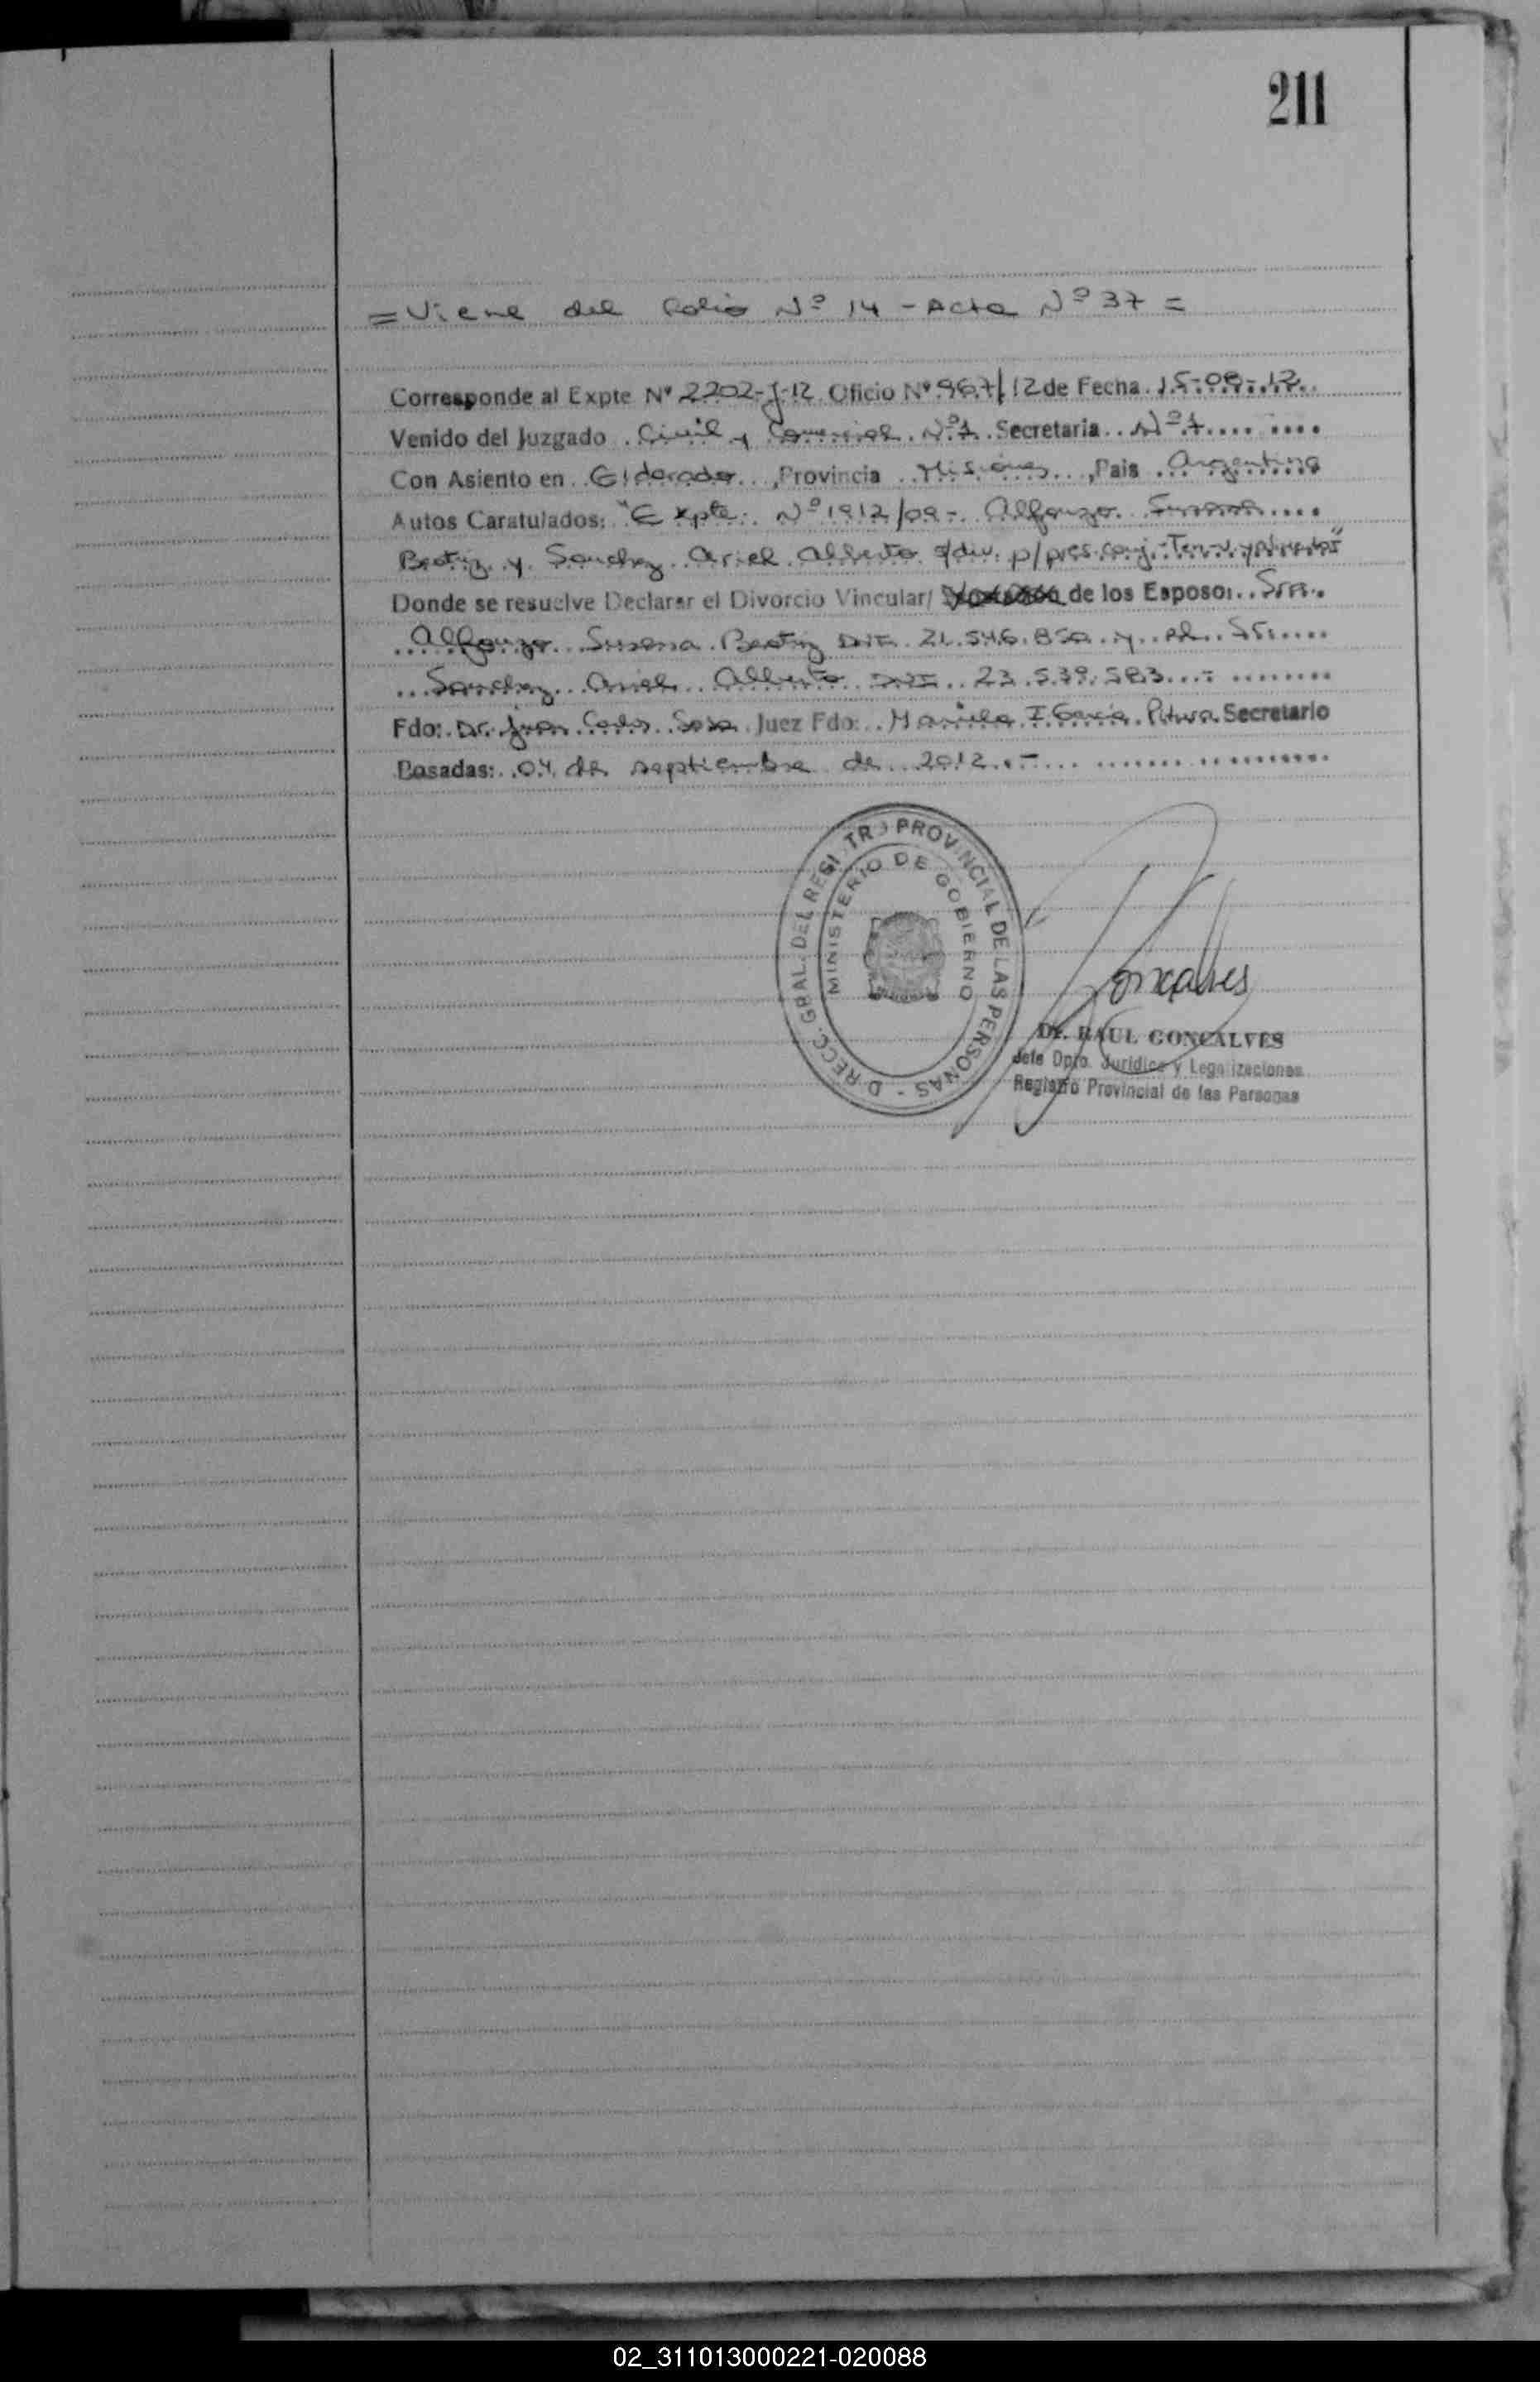 211
= Viene del Folio Nº 14 - Acta Nº 37 =
Corresponde al Expte Nº 2202-J-12 Oficio Nº 967/12 de Fecha 15-08-12
Venido del Juzgado Civil y Comercial Nº 1 Secretaria Nº 1
Con Asiento en Eldorado, Provincia Misiones, Pais Argentina
Autos Caratulados: "Expte. Nº 1912/09 - Alfonzo Susana
Beatriz y Sanchez Ariel Alberto s/div. p/pres. conj.
Donde se resuelve Declarar el Divorcio Vincular/ de los Esposos Sra.
Alfonzo Susana Beatriz DNI 21.546.850 y el Sr.
Sanchez Ariel Alberto DNI 23.539.583
Fdo: Dr. Juan Carlos Sosa Juez Fdo: Mariela I García Secretario
Posadas: 04 de septiembre de 2012.-
DIRECC. GRAL. DEL REGISTRO PROVINCIAL DE LAS PERSONAS -
MINISTERIO DE GOBIERNO
Goncalves
Dr. RAUL GONCALVES
Jefe Dpto. Juridico y Legalizaciones
Registro Provincial de las Personas
02_311013000221-020088